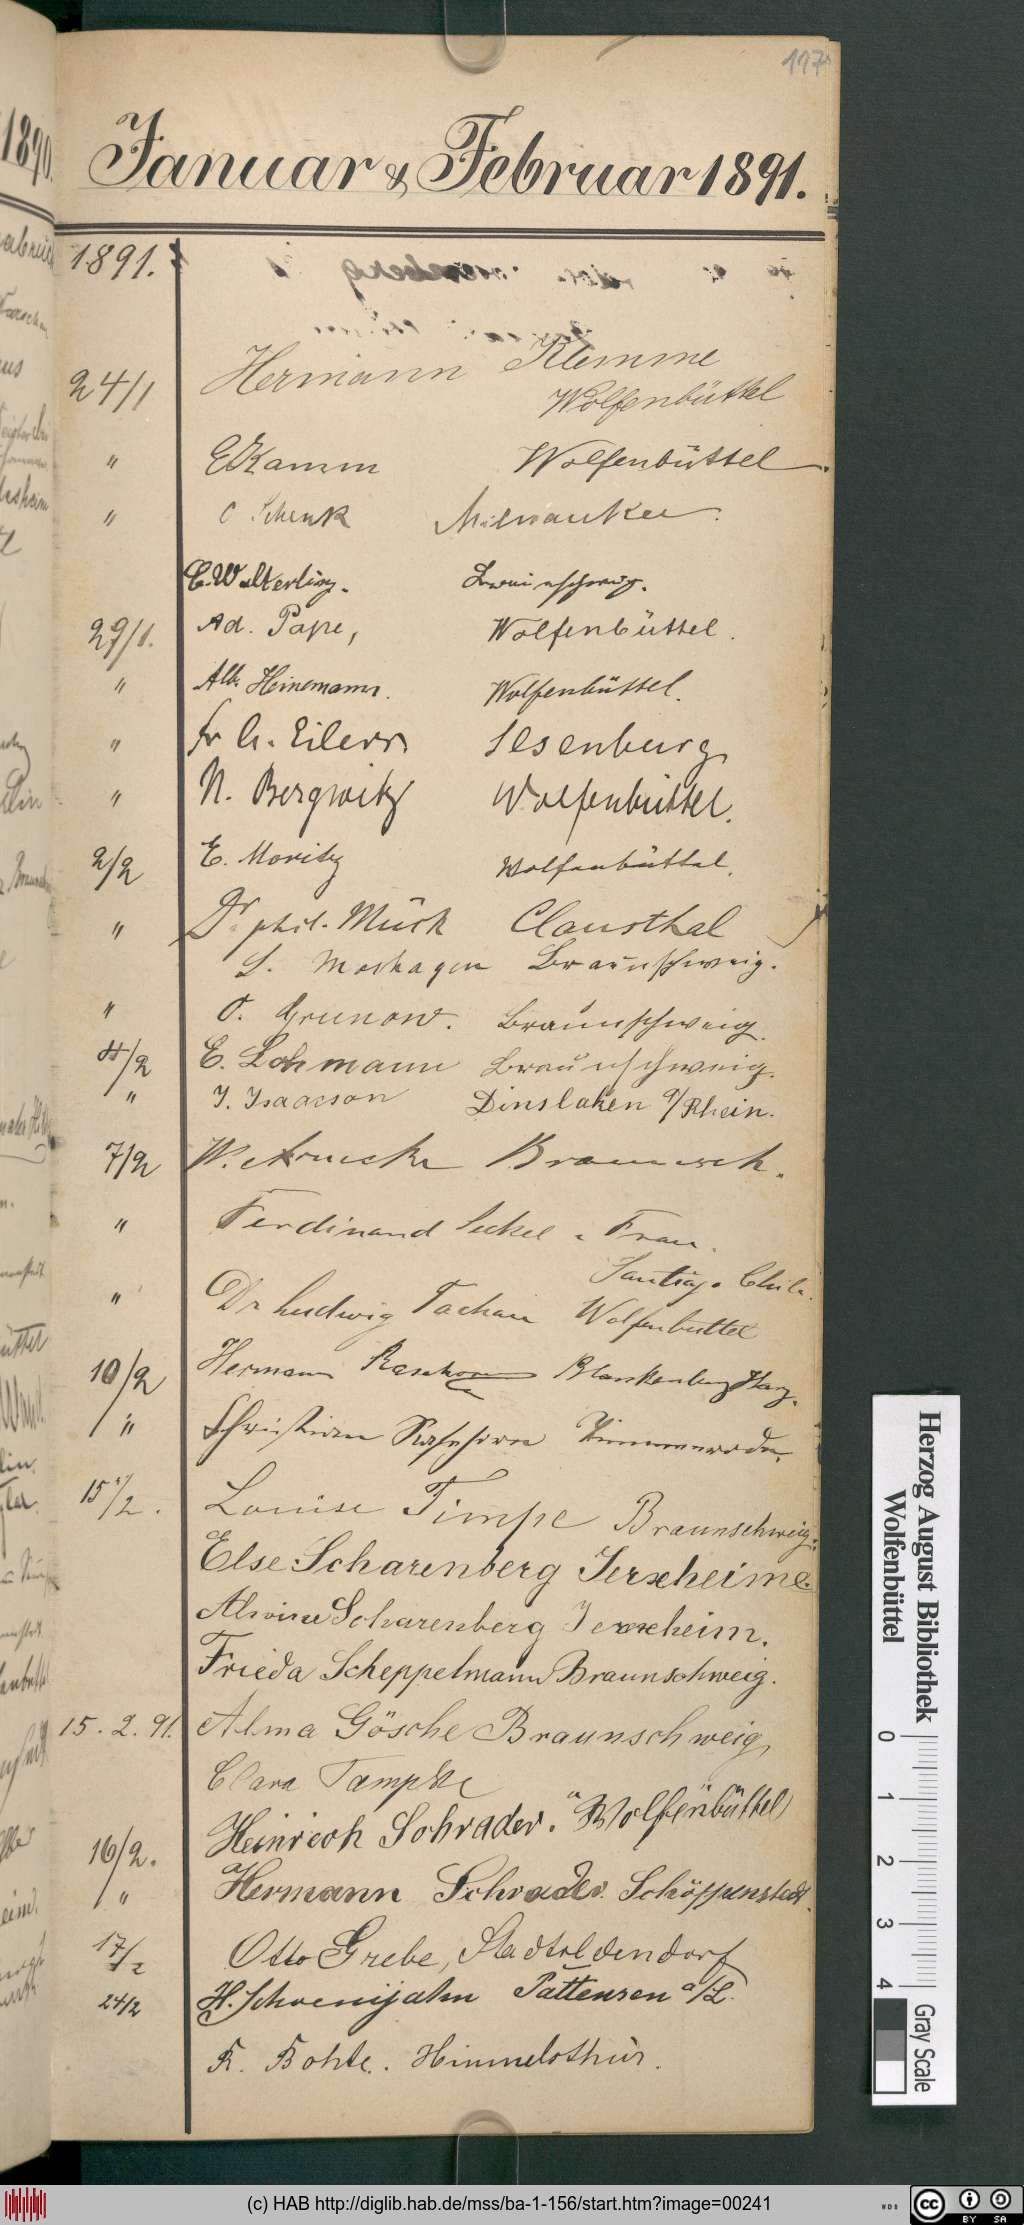 117
Januar & Februar 1891.
1891.
24/1 Hermann Klemme
Wolfenbüttel
" E Kamm Wolfenbüttel.
" C Schenk Milwaukee.
E. Walterling. Braunschweig.
29/1. Ad. Pape, Wolfenbüttel.
" Alb. Heinemann. Wolfenbüttel.
" Fr. Eilers Ilsenburg
" N. Bergwitz Wolfenbüttel.
2/2 E. Moritz Wolfenbüttel.
" Dr. phil. Mück Clausthal
Braunschweig.
" O. Grunow. Braunschweig.
4/2 E. Lohmann Braunschweig.
" J. Isaacson Dinslaken a/Rhein.
7/2 W.
" Ferdinand Seckel u Frau.
Santiago Chile.
" Dr Ludwig Tachau Wolfenbüttel
10/2 Hermann Blankenburg Harz.
" Christian
15/2. Louise Timpe Braunschweig.
Else Scharenberg Jerxheim.
Alwine Scharenberg Jerxheim.
Frieda Scheppelmann Braunschweig.
15. 2. 91. Alma Gösche Braunschweig,
Clara Tampke " " "
16/2. Heinrich Schrader. Wolfenbüttel
" Hermann Schrader. Schöppenstedt.
17/2 Otto Grebe, Stadtoldendorf
24/2 H. Schoenijahn Pattensen a/L.
R. Bohle. Himmelsthür.
Herzog August Bibliothek
Wolfenbüttel
0 1 2 3 4
Gray Scale
(c) HAB http://diglib.hab.de/mss/ba-1-156/start.htm?image=00241
WDB
cc BY SA